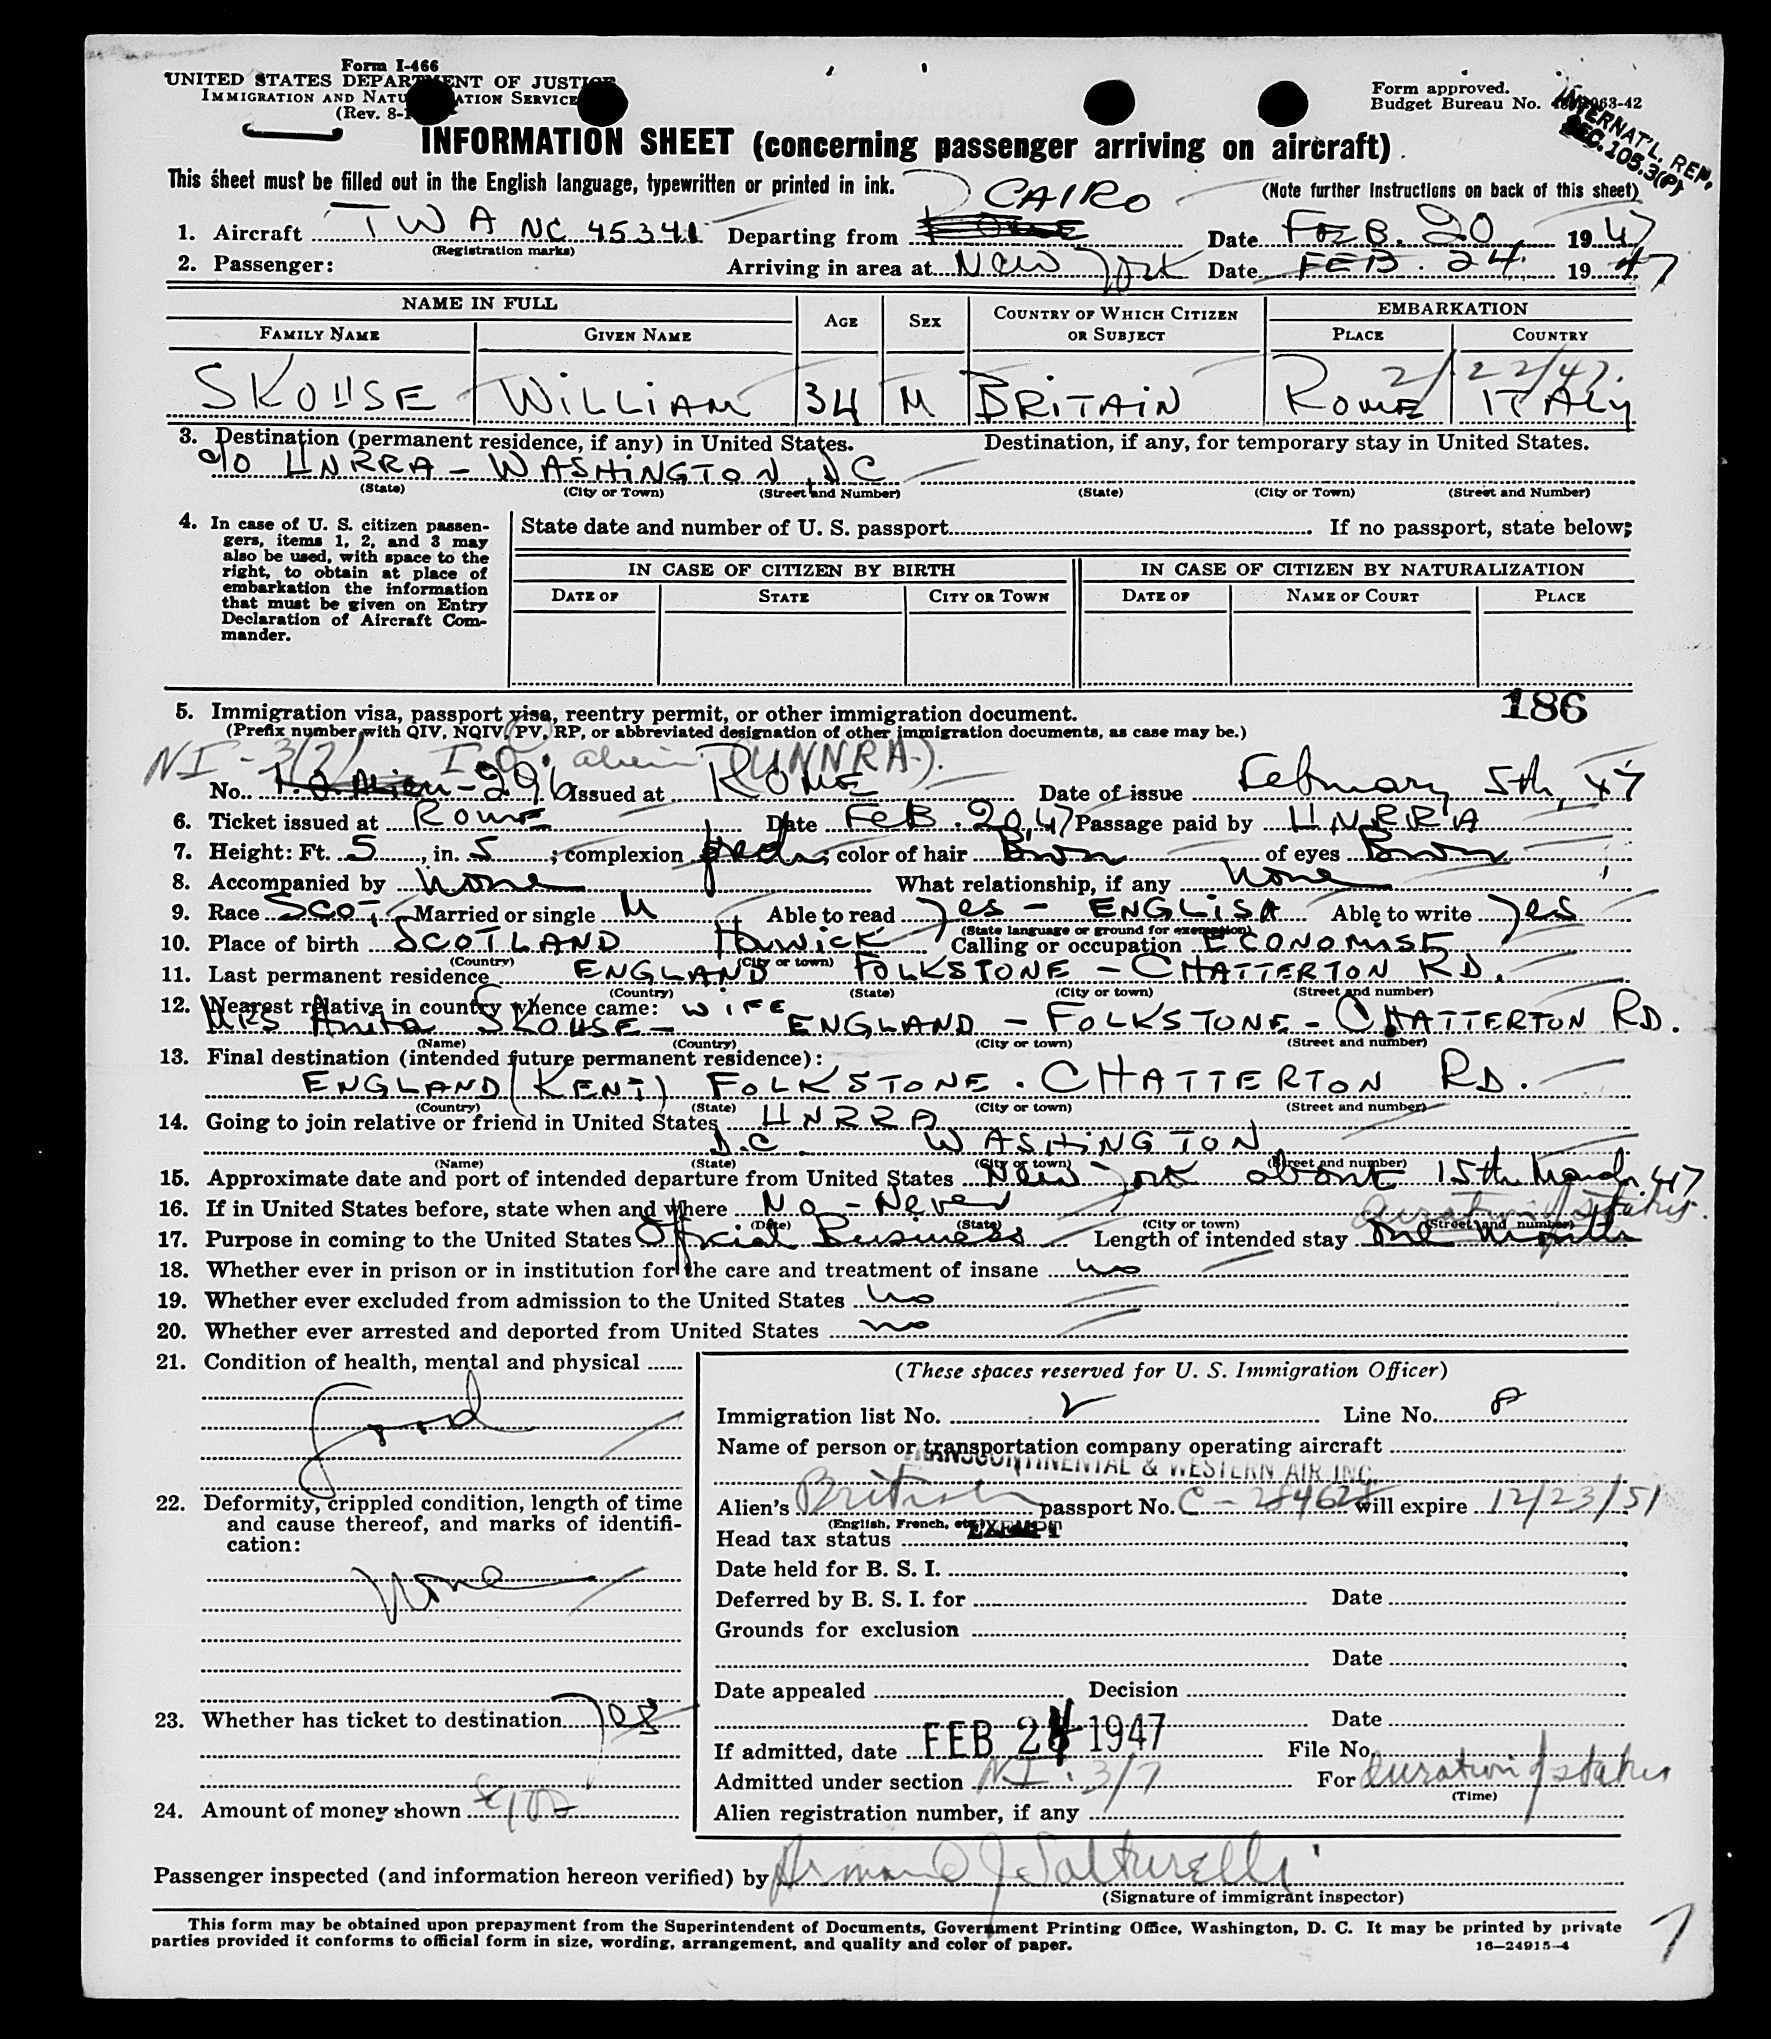 Form I-466
UNITED STATES DEPARTMENT OF JUSTICE
IMMIGRATION AND NATURALIZATION SERVICE
(Rev. 8-
Form approved.
Budget Bureau No. 063-42
INTERNAT'L. REP.
SEC. 105.3(P)
INFORMATION SHEET (concerning passenger arriving on aircraft)
This sheet must be filled out in the English language, typewritten or printed in ink.
(Note further instructions on back of this sheet)
CAIRO
1. Aircraft TWA NC 45341 Departing from Date FEB. 20 1947
(Registration marks)
2. Passenger: Arriving in area at New York Date FEB. 24. 1947
NAME IN FULL AGE SEX COUNTRY OF WHICH CITIZEN OR SUBJECT EMBARKATION
FAMILY NAME GIVEN NAME PLACE COUNTRY
2/22/47.
SKOUSE WILLIAM 34 M BRITAIN ROME ITALY
3. Destination (permanent residence, if any) in United States. Destination, if any, for temporary stay in United States.
c/o UNRRA - WASHINGTON, DC
(State) (City or Town) (Street and Number) (State) (City or Town) (Street and Number)
4. In case of U. S. citizen passen-
gers, items 1, 2, and 3 may
also be used, with space to the
right, to obtain at place of
embarkation the information
that must be given on Entry
Declaration of Aircraft Com-
mander.
State date and number of U. S. passport If no passport, state below;
IN CASE OF CITIZEN BY BIRTH IN CASE OF CITIZEN BY NATURALIZATION
DATE OF STATE CITY OR TOWN DATE OF NAME OF COURT PLACE
186
5. Immigration visa, passport visa, reentry permit, or other immigration document.
(Prefix number with QIV, NQIV, PV, RP, or abbreviated designation of other immigration documents, as case may be.)
NI - 3(7) I.O. alien (UNNRA).
No. 296 Issued at ROME Date of issue February 5th, 47
6. Ticket issued at ROME Date FEB. 20, 47 Passage paid by UNRRA
7. Height: Ft. 5, in. 5; complexion fresh; color of hair Brown of eyes Brown
8. Accompanied by None What relationship, if any None
9. Race SCOT, Married or single M Able to read Yes - ENGLISH Able to write Yes
(State language or ground for exemption)
10. Place of birth SCOTLAND HAWICK Calling or occupation ECONOMIST
(Country) (City or town)
11. Last permanent residence ENGLAND FOLKSTONE - CHATTERTON RD.
(Country) (State) (City or town) (Street and number)
12. Nearest relative in country whence came: WIFE
MRS Anita SKOUSE - ENGLAND - FOLKSTONE - CHATTERTON RD.
(Name) (Country) (City or town) (Street and number)
13. Final destination (intended future permanent residence):
ENGLAND (KENT) FOLKSTONE. CHATTERTON RD.
(Country) (State) (City or town) (Street and number)
14. Going to join relative or friend in United States UNRRA
D.C. WASHINGTON
(Name) (State) (City or town) (Street and number)
15. Approximate date and port of intended departure from United States New York about 15th March. 47
16. If in United States before, state when and where No - Never
duration of status.
(Date) (State) (City or town) (Street and number)
17. Purpose in coming to the United States Official Business Length of intended stay One Month
18. Whether ever in prison or in institution for the care and treatment of insane no
19. Whether ever excluded from admission to the United States no
20. Whether ever arrested and deported from United States no
21. Condition of health, mental and physical
Good
22. Deformity, crippled condition, length of time
and cause thereof, and marks of identifi-
cation:
None
23. Whether has ticket to destination Yes
24. Amount of money shown £100
(These spaces reserved for U. S. Immigration Officer)
Immigration list No. 2 Line No. 8
Name of person or transportation company operating aircraft
TRANSCONTINENTAL & WESTERN AIR INC.
Alien's British passport No. C - 284628 will expire 12/23/51
(English, French, etc.)
Head tax status EXEMPT
Date held for B. S. I.
Deferred by B. S. I. for Date
Grounds for exclusion
Date
Date appealed Decision
Date
If admitted, date FEB 24 1947 File No.
Admitted under section NI. 3/7 For duration of status
(Time)
Alien registration number, if any
Passenger inspected (and information hereon verified) by Armand J. Salturelli
(Signature of immigrant inspector)
This form may be obtained upon prepayment from the Superintendent of Documents, Government Printing Office, Washington, D. C. It may be printed by private
parties provided it conforms to official form in size, wording, arrangement, and quality and color of paper.
16—24915-4